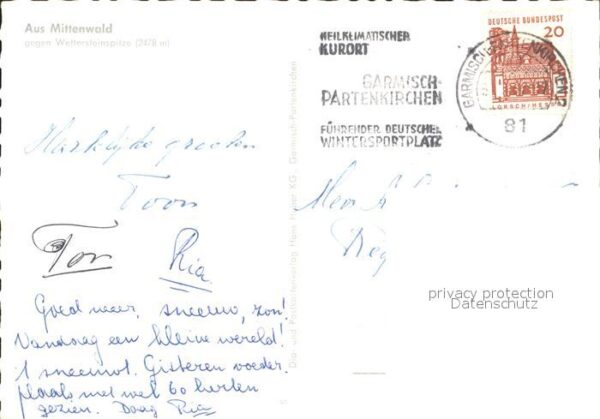 Aus Mittenwald
gegen Wettersteinspitze (2478 m)
HEILKLIMATISCHER
KURORT
GARMISCH-
PARTENKIRCHEN
FÜHRENDER DEUTSCHER
WINTERSPORTPLATZ
DEUTSCHE BUNDESPOST
20
LORSCH/HESSEN
GARMISCH-PARTENKIRCHEN 2
81
Hartelijke groeten
Toon
Ton
Ria
Goed weer, sneeuw, zon!
Vandaag een kleine wereld!
1 sneeuwt. Gisteren voeder
plaats met wel 60 herten
gezien. Daag Ria
Garmisch-Partenkirchen
privacy protection
Datenschutz